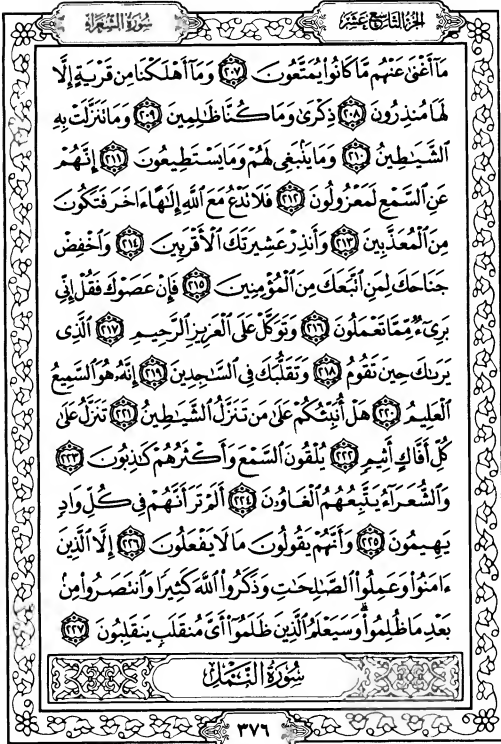 الجزء التاسع عشر
سورة الشعراء
مَآ أَغْنَىٰ عَنْهُم مَّا كَانُوا۟ يُمَتَّعُونَ ٢٠٧ وَمَآ أَهْلَكْنَا مِن قَرْيَةٍ إِلَّا
لَهَا مُنذِرُونَ ٢٠٨ ذِكْرَىٰ وَمَا كُنَّا ظَٰلِمِينَ ٢٠٩ وَمَا تَنَزَّلَتْ بِهِ
ٱلشَّيَٰطِينُ ٢١٠ وَمَا يَنۢبَغِى لَهُمْ وَمَا يَسْتَطِيعُونَ ٢١١ إِنَّهُمْ
عَنِ ٱلسَّمْعِ لَمَعْزُولُونَ ٢١٢ فَلَا تَدْعُ مَعَ ٱللَّهِ إِلَٰهًا ءَاخَرَ فَتَكُونَ
مِنَ ٱلْمُعَذَّبِينَ ٢١٣ وَأَنذِرْ عَشِيرَتَكَ ٱلْأَقْرَبِينَ ٢١٤ وَٱخْفِضْ
جَنَاحَكَ لِمَنِ ٱتَّبَعَكَ مِنَ ٱلْمُؤْمِنِينَ ٢١٥ فَإِنْ عَصَوْكَ فَقُلْ إِنِّى
بَرِىٓءٌ مِّمَّا تَعْمَلُونَ ٢١٦ وَتَوَكَّلْ عَلَى ٱلْعَزِيزِ ٱلرَّحِيمِ ٢١٧ ٱلَّذِى
يَرَىٰكَ حِينَ تَقُومُ ٢١٨ وَتَقَلُّبَكَ فِى ٱلسَّٰجِدِينَ ٢١٩ إِنَّهُۥ هُوَ ٱلسَّمِيعُ
ٱلْعَلِيمُ ٢٢٠ هَلْ أُنَبِّئُكُمْ عَلَىٰ مَن تَنَزَّلُ ٱلشَّيَٰطِينُ ٢٢١ تَنَزَّلُ عَلَىٰ
كُلِّ أَفَّاكٍ أَثِيمٍ ٢٢٢ يُلْقُونَ ٱلسَّمْعَ وَأَكْثَرُهُمْ كَٰذِبُونَ ٢٢٣
وَٱلشُّعَرَآءُ يَتَّبِعُهُمُ ٱلْغَاوُۥنَ ٢٢٤ أَلَمْ تَرَ أَنَّهُمْ فِى كُلِّ وَادٍ
يَهِيمُونَ ٢٢٥ وَأَنَّهُمْ يَقُولُونَ مَا لَا يَفْعَلُونَ ٢٢٦ إِلَّا ٱلَّذِينَ
ءَامَنُوا۟ وَعَمِلُوا۟ ٱلصَّٰلِحَٰتِ وَذَكَرُوا۟ ٱللَّهَ كَثِيرًا وَٱنتَصَرُوا۟ مِنۢ
بَعْدِ مَا ظُلِمُوا۟ ۗ وَسَيَعْلَمُ ٱلَّذِينَ ظَلَمُوٓا۟ أَىَّ مُنقَلَبٍ يَنقَلِبُونَ ٢٢٧
سُورَةُ النَّمْلِ
٣٧٦